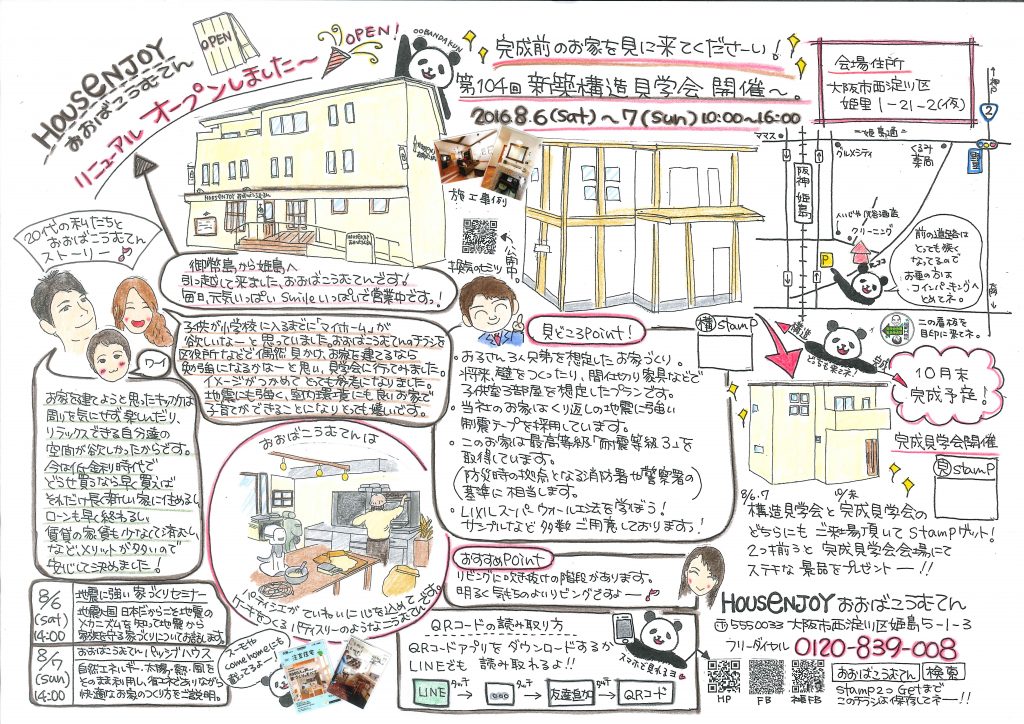 HOUSENJOY
おおばこうむてん
OPEN
リニューアル オープンしました〜
OPEN!
OOBANDAKUN
完成前のお家を見に来てくださーい!
第104回 新築構造見学会 開催〜。
2016.8.6(Sat)〜7(Sun)10:00〜16:00
会場住所
大阪市西淀川区
姫里1-21-2(仮)
2
姫島通
ママス
グルメシティ
くるみ薬局
野里
阪神 姫島
クリーニング
P
ココ
前の道路は
とっても狭く
なってるので
お車の方は
コインパーキングへ
とめてネ。
この看板を
目印に来てネ。
施工事例
HOUSENJOY おおばこうむてん
20代の私たちと
おおばこうむてん
ストーリー♪
御幣島から姫島へ
引っ越して来ました、おおばこうむてんです!
毎日、元気いっぱい Smileいっぱいで営業中です。!
子供が小学校に入るまでに「マイホーム」が
欲しいなーと思っていました。おおばこうむてんのチラシを
区役所などで偶然見かけ、お家を建てるなら
勉強になるかなーと思い、見学会に行ってみました。
イメージがつかめてとても参考になりました。
地震にも強く、室内環境にも良いお家で
子育てができることになりとっても嬉しいです。
ワーイ
お家を建てようと思ったキッカケは
周りを気にせず楽しんだり、
リラックスできる自分達の
空間が欲しかったからです。
今なら低金利時代で
どうせ買うなら早く買えば
それだけ長く新しい家に住めるし
ローンも早く終わるし
賃貸の家賃も少なくて済むし
など、メリットが多いので
安心して決めました!
見どころPoint!
・お子さん3人兄弟を想定したお家づくり。
将来、壁をつくったり、間仕切り家具などで
子供室3部屋を想定したプランです。
・当社のお家はくり返しの地震に強い
制震テープを採用しています。
・このお家は最高等級「耐震等級3」を
取得しています。
(防災時の拠点となる消防署や警察署の
基準に相当します。)
・LIXILスーパーウォール工法を学ぼう!
サンプルなど多数ご用意しております。!
構 stamp
構造
完成
どちらも来てネ!
10月末
完成予定!
完成見学会開催
見 stamp
8/6・7
10/末
構造見学会と完成見学会の
どちらにもご来場頂いてstampゲット!
2つ揃うと完成見学会会場にて
ステキな景品をプレゼントー!!
おおばこうむてんは
パティシエがていねいに心を込めて
ケーキをつくるパティスリーのようなこうむてんです。
おすすめPoint
リビングに吹き抜けの階段があります。
明るく気もちのよいリビングですよー♪
8/6
(sat)
14:00
地震に強い家づくりセミナー
地震大国日本だからこそ地震の
メカニズムを知って地震から
家族を守る家づくりについてお話します。
8/7
(sun)
14:00
おおばこうむてんパッシブハウス
自然エネルギー・太陽・熱・風を
そのまま利用し、省エネでありながら
快適なお家のつくり方をご説明。
スーモや
come homeにも
載ってるよー!
注文住宅
QRコードの読み取り方
QRコードアプリをダウンロードするか
LINEでも読み取れるよ!!
LINE
タッチ
タッチ
友達追加
タッチ
QRコード
スマホで見れるヨ
HOUSENJOY おおばこうむてん
〒5550033 大阪市西淀川区姫島5-1-3
フリーダイヤル 0120-839-008
HP
FB
おおばこうむてん 検索
stamp2つGetまで
このチラシは保管してネー!!